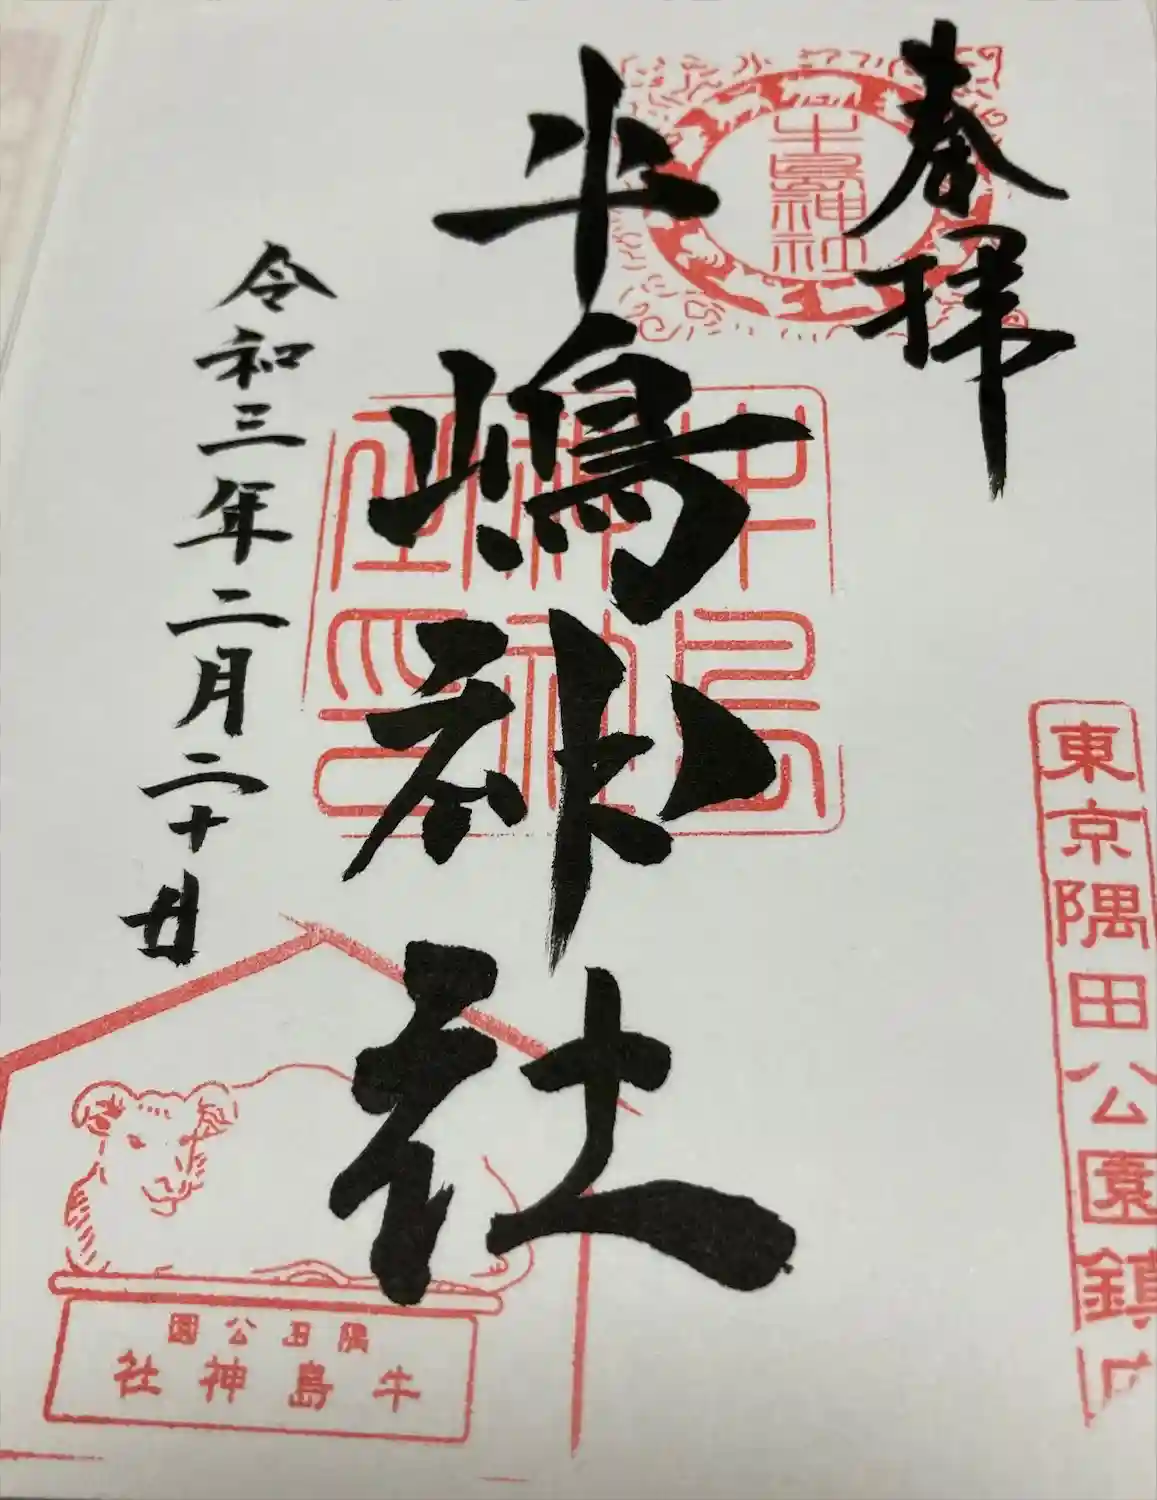 奉拝
牛島神社
牛嶋神社
牛島神社印
令和三年二月二十日
東京隅田公園鎮
隅田公園
牛島神社